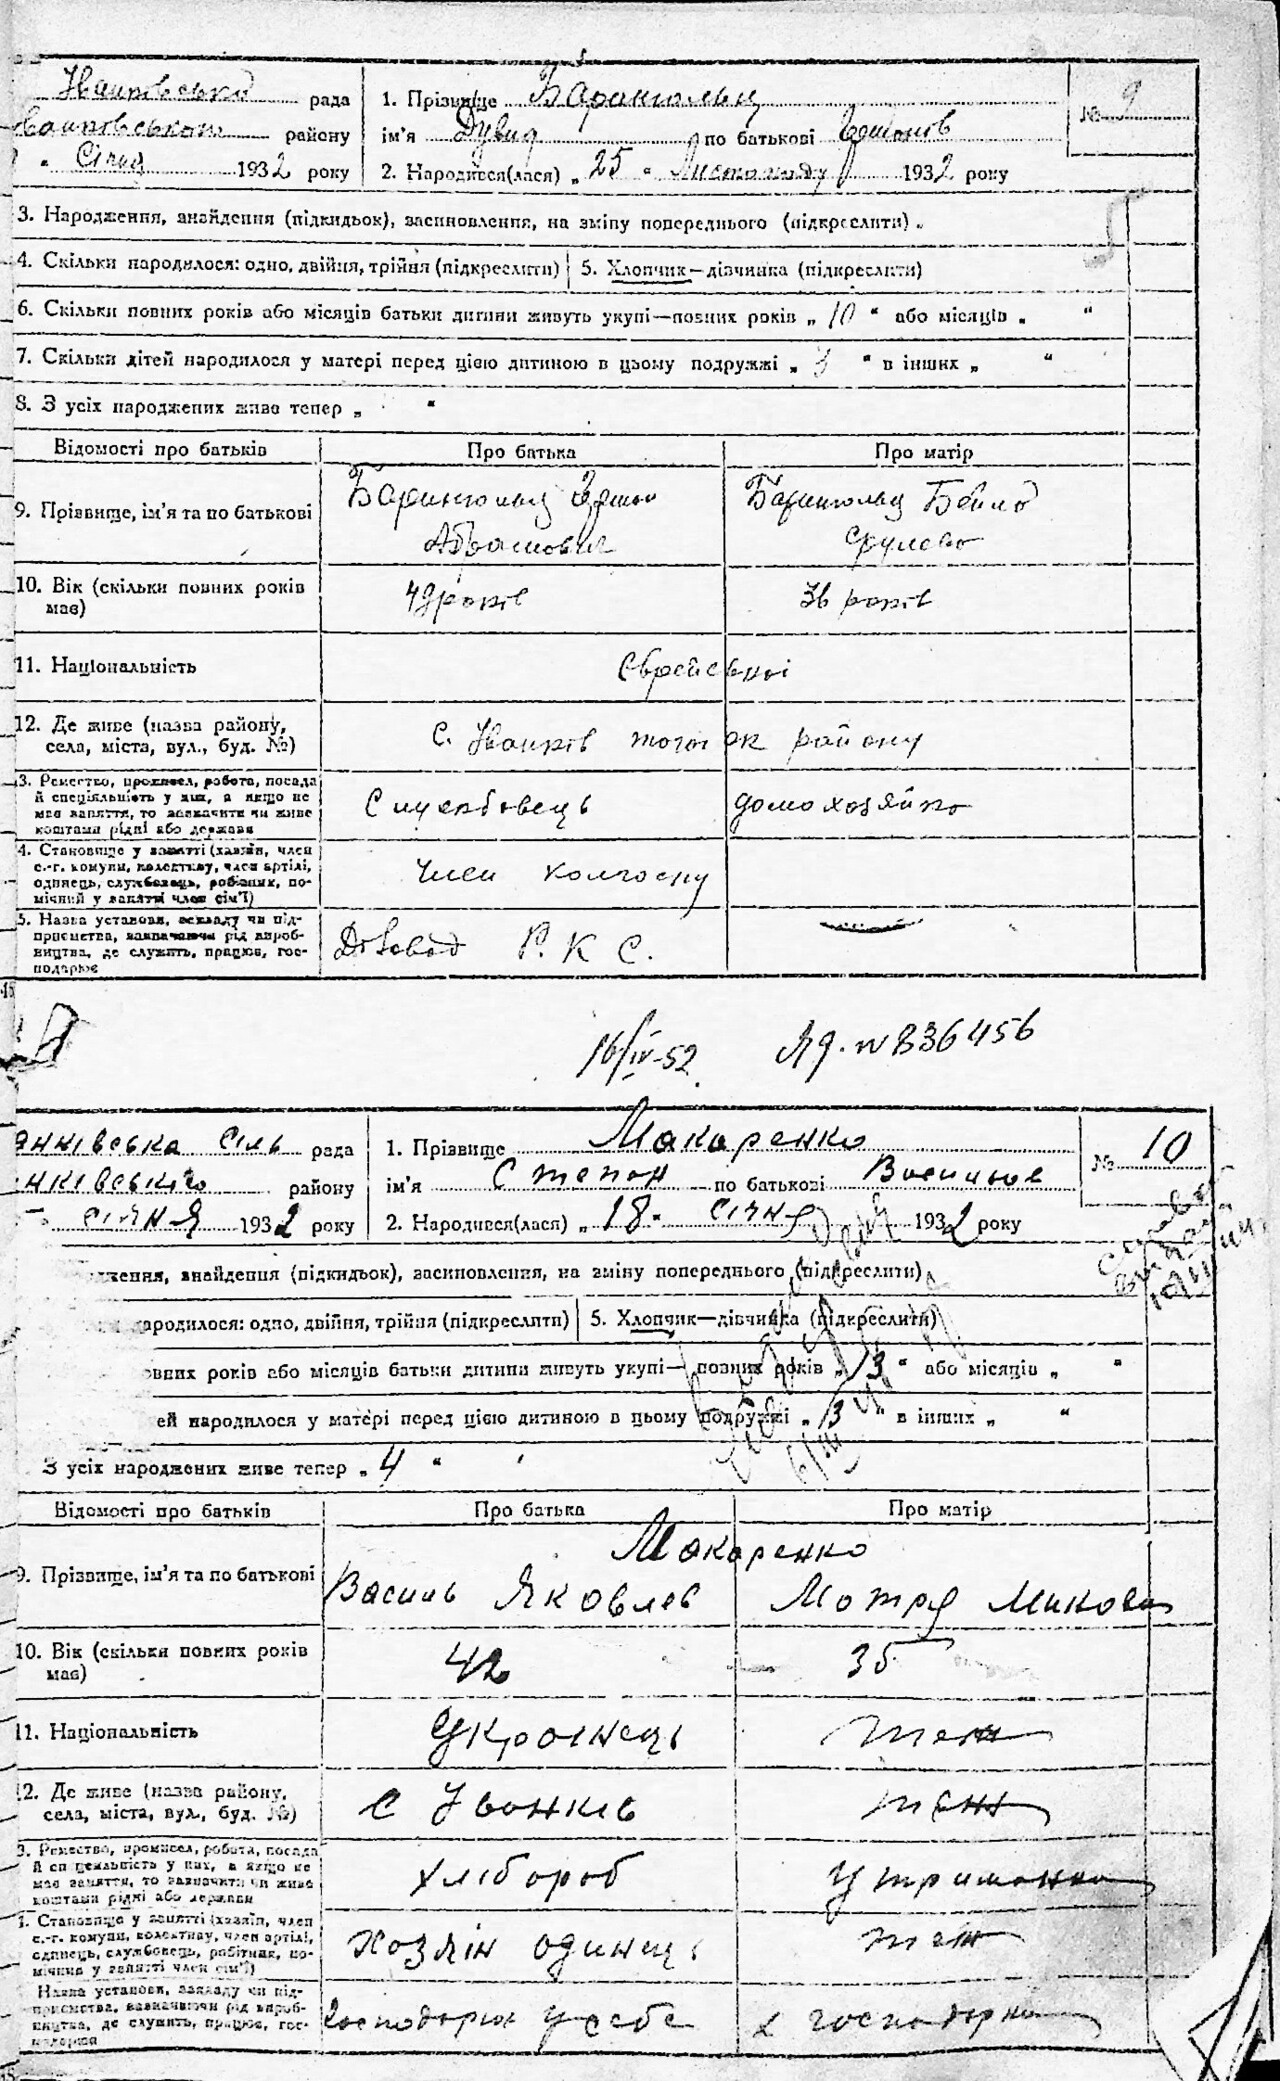 Іванковська рада
району
Січня 1932 року
1. Прізвище Барингольц
ім'я Дувид по батькові Гершков
2. Народився(лася) „25“ Листопаду 1932 року
№ 9
3. Народження, знайдення (підкидьок), засиновлення, на зміну попереднього (підкреслити).
4. Скільки народилося: одно, двійня, трійня (підкреслити)
5. Хлопчик—дівчинка (підкреслити)
6. Скільки повних років або місяців батьки дитини живуть укупі—повних років „10“ або місяців „ “
7. Скільки дітей народилося у матері перед цією дитиною в цьому подружжі „3“ в інших „ “
8. З усіх народжених живе тепер „ “
Відомості про батьків Про батька Про матір
9. Прізвище, ім'я та по батькові
Барингольц Гершко
Абрамович
Барингольц Бейла
Срулева
10. Вік (скільки повних років має)
49 років 36 років
11. Національність
Єврейської
12. Де живе (назва району, села, міста, вул., буд. №)
С. Іванків того ж району
3. Ремество, промисел, робота, посада
й спеціяльність у них, а якщо не
має заняття, то зазначити чи живе
коштами рідні або держави
Службовець домохозяйка
4. Становище у занятті (хазяїн, член
с.-г. комуни, колективу, член артілі,
одинець, службовець, робітник, по-
мічний у занятті член сім'ї)
Член колгоспу
5. Назва установи, закладу чи під-
приємства, зазначаючи рід вироб-
ництва, де служить, працює, гос-
подарює
Р. К. С.
16/IV-52 ЯЯ. № 836456
Сіль рада
району
січня 1932 року
1. Прізвище Макаренко
ім'я Степан по батькові Васильов
2. Народився(лася) „18“ січня 1932 року
№ 10
ження, знайдення (підкидьок), засиновлення, на зміну попереднього (підкреслити)
народилося: одно, двійня, трійня (підкреслити)
5. Хлопчик—дівчинка (підкреслити)
овних років або місяців батьки дитини живуть укупі—повних років „13“ або місяців „ “
ей народилося у матері перед цією дитиною в цьому подружжі „3“ в інших „ “
З усіх народжених живе тепер „4“
Відомості про батьків Про батька Про матір
Макаренко
9. Прізвище, ім'я та по батькові
Василь Яковлев Мотря
10. Вік (скільки повних років має)
42 35
11. Національність
Українець теж
2. Де живе (назва району, села, міста, вул., буд. №)
С Іванків теж
3. Ремество, промисел, робота, посада
й спеціяльність у них, а якщо не
має заняття, то зазначити чи живе
коштами рідні або держави
хлібороб утриманка
4. Становище у занятті (хазяїн, член
с.-г. комуни, колективу, член артілі,
одинець, службовець, робітник, по-
мічний у занятті член сім'ї)
Хозяін одинець теж
Назва установи, закладу чи під-
приємства, зазначаючи рід вироб-
ництва, де служить, працює, гос-
подарює
у себе